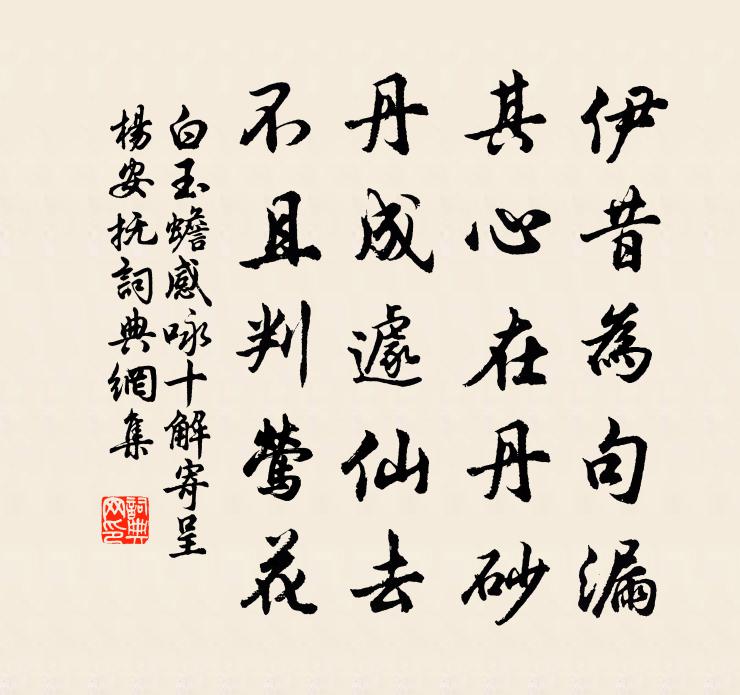 伊昔為句漏
其心在丹砂
丹成遽仙去
不且判鶯花
白玉蟾感咏十解寄呈
楊安抚詞典網集
詞典
网印